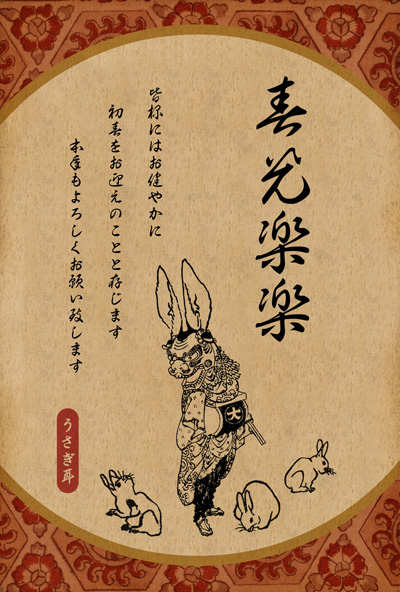 春光楽楽
皆様にはお健やかに
初春をお迎えのことと存じます
本年もよろしくお願い致します
大
うさぎ耳